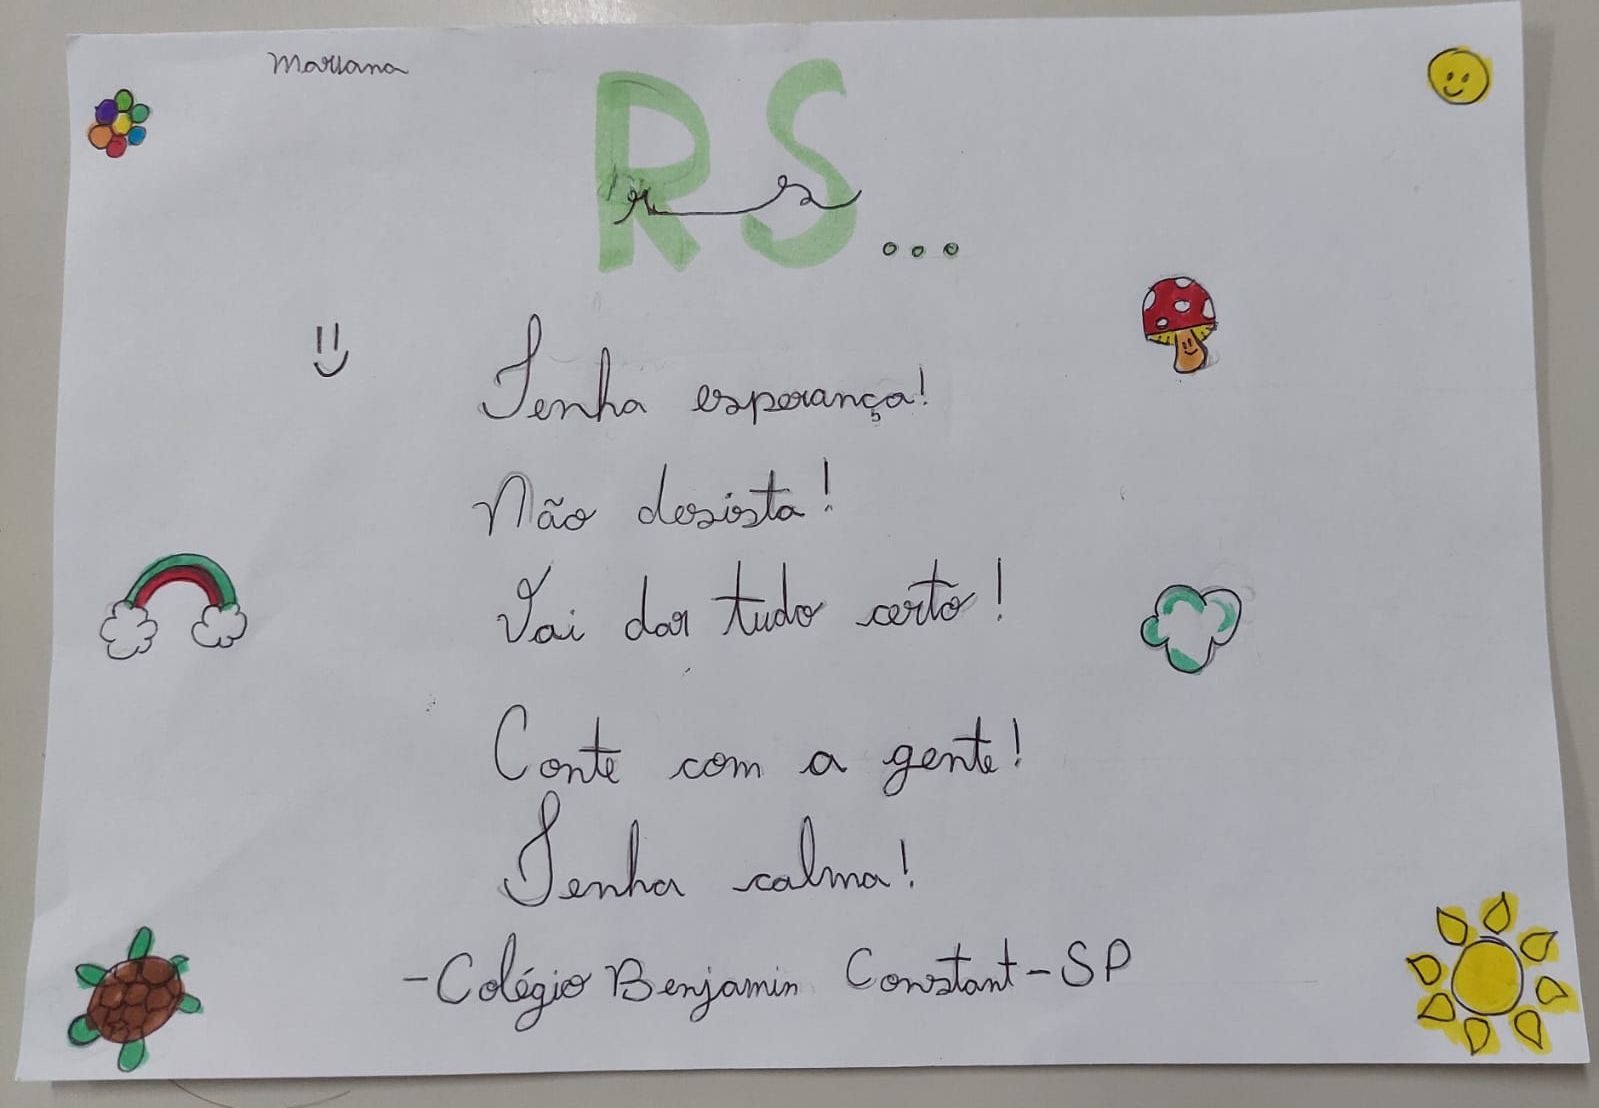 Mariana
RS...
rs
Tenha esperança!
Não desista!
Vai dar tudo certo!
Conte com a gente!
Tenha calma!
-Colégio Benjamin Constant-SP